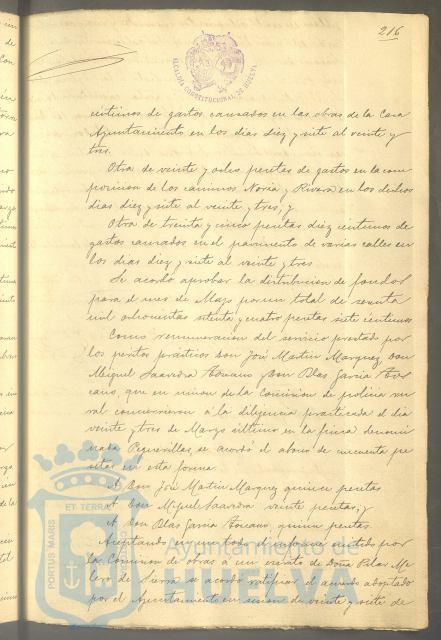 216
ALCALDIA CONSTITUCIONAL DE HUELVA
céntimos de gastos causados en las obras de la Casa
Ayuntamiento en los dias diez y siete al veinte y
tres.
Otra de veinte y ocho pesetas de gastos en la com
posicion de los caminos Noria y Rivera en los dichos
dias diez y siete al veinte y tres, y
Otra de treinta y cinco pesetas diez céntimos de
gastos causados en el pavimento de varias calles en
los dias diez y siete al veinte y tres.
Se acordó aprobar la distribucion de fondos
para el mes de Mayo por un total de sesenta
mil ochocientas setenta y cuatro pesetas siete céntimos
Como remuneracion del servicio prestado por
los peritos prácticos Don José Martin Marquez, Don
Miguel Saavedra y Don Blas Garcia
que en union de la Comision de policia ru
ral concurrieron á la diligencia practicada el dia
veinte y tres de Marzo último en la finca denomi
nada Peguerillas, se acordó el abono de cincuenta pe
setas en esta forma.
A Don José Martin Marquez quince pesetas
A Don Miguel Saavedra veinte pesetas, y
A Don Blas Garcia quince pesetas.
Aceptando en un todo el informe emitido por
la Comision de obras á un escrito de Doña Pilar Me
lero de Sierra se acordó ratificar el acuerdo adoptado
por el Ayuntamiento en sesion de veinte y siete de
PORTUS MARIS ET TERRAE
Ayuntamiento de
HUELVA